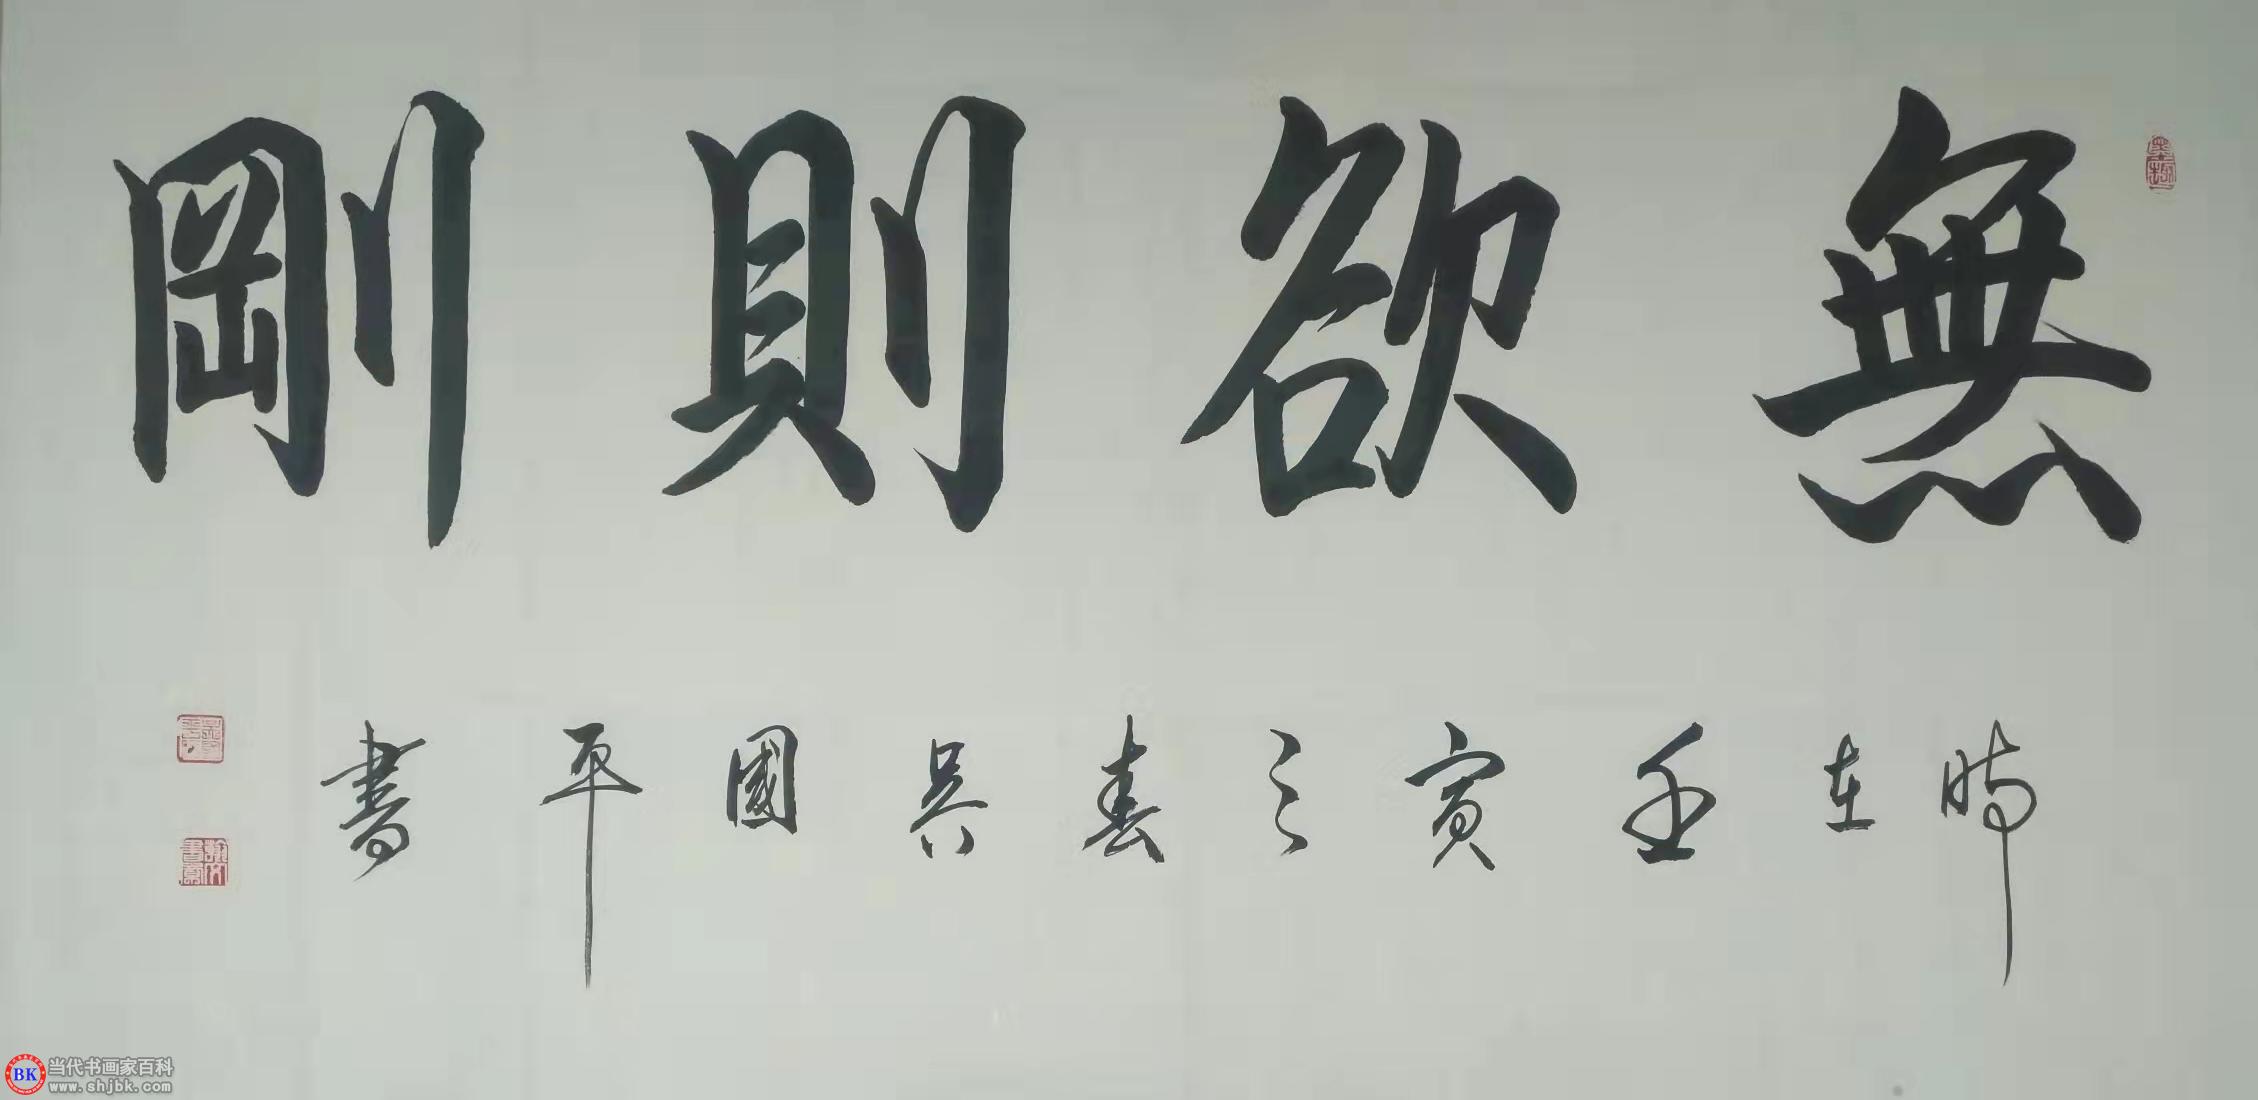 無欲則剛
時在壬寅之春吳國平書
BK 当代书画家百科
www.shjbk.com